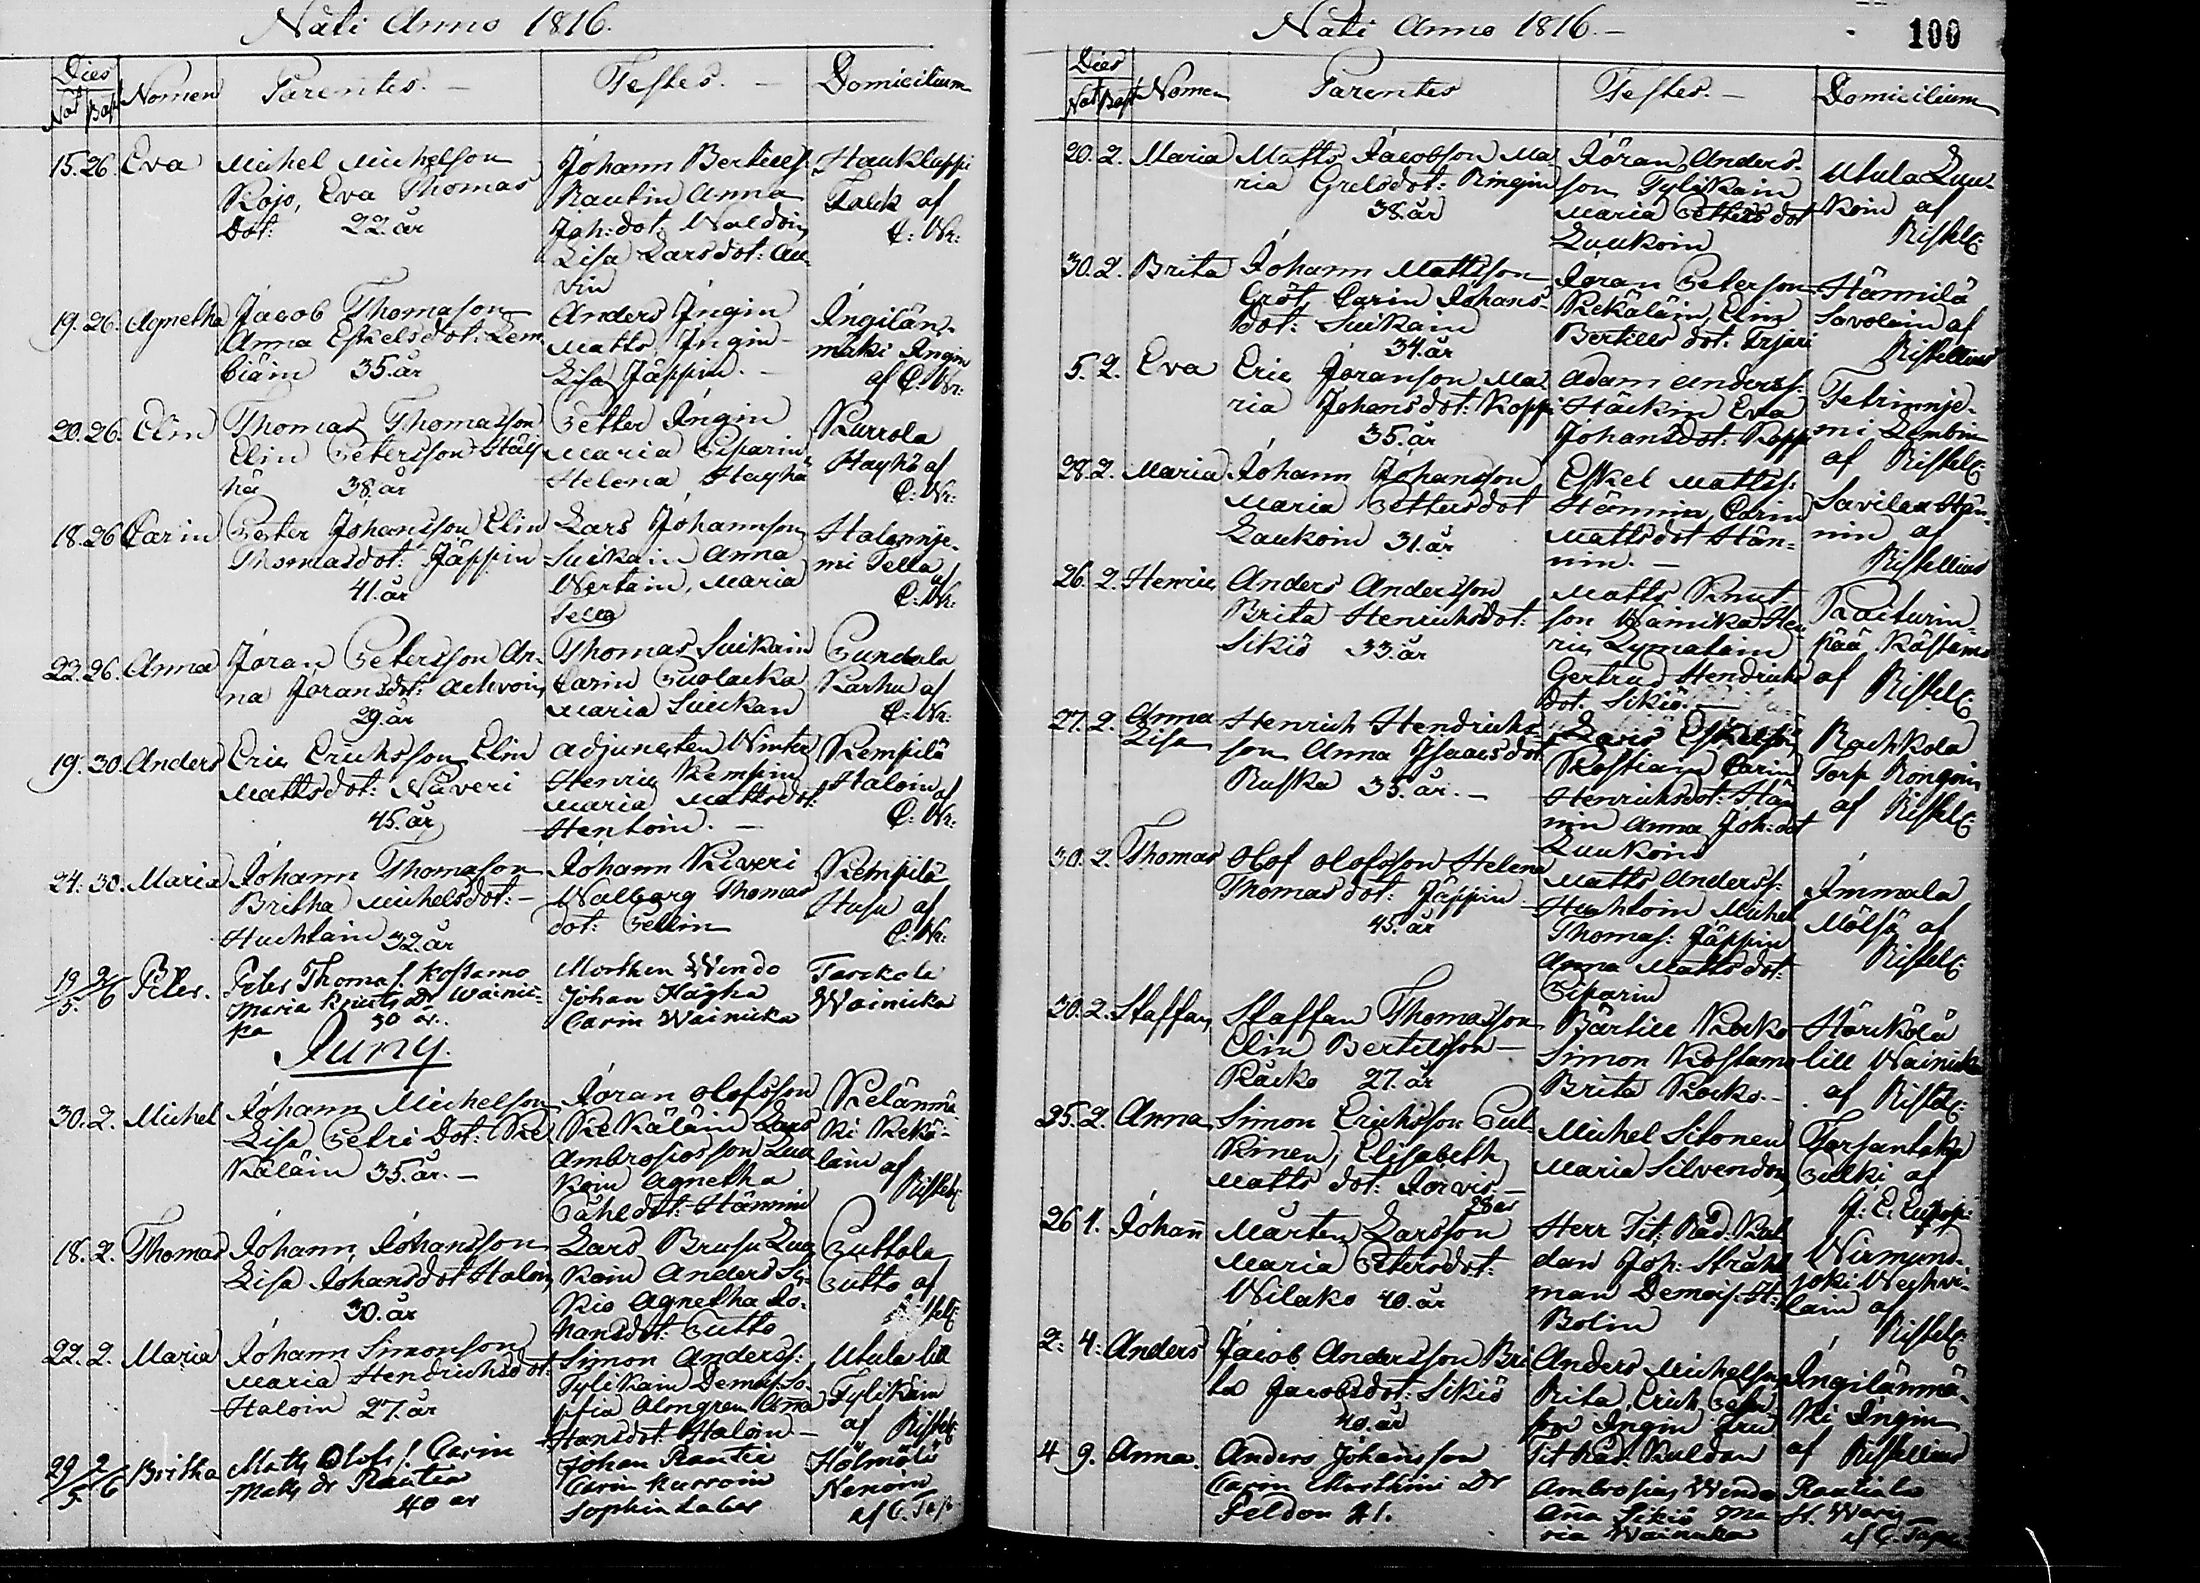 Nati Anno 1816.
Dies
Nat Bapt Nomen Parentes. Testes. Domicilium
15. 26. Eva Michel Michelson
Kojo, Eva Thomas
dot: 22. år
Johann Bertills:
Rautin Anna
Joh: dot: Waldoin
Lisa Larsdot: Au-
vin
Hauklappi
Falck af
C: Wr:
19. 26. Agnetha Jacob Thomason
Anna Eskelsdot: Lem
biäin 35. år
Anders Ingin
Matts Ingin
Lisa Jäppin.
Ingilän-
mäki Ingin
af C: Wr:
20. 26. Elin Thomas Thomasson
Elin Petersson Häy
hä 38. år
Petter Ingin
Maria Piparin
Helena Hayhä
Kurrola
Hayhä af
C: Wr:
18. 26 Carin Peter Johansson Elin
Thomasdot: Jäppin
41. år
Lars Johannson
Suikain Anna
Wertain, Maria
Tella
Halannje-
mi Tella
af
C: Wr:
22. 26. Anna Jöran Petersson An-
na Jöransdot: Achvoin
29. år
Thomas Suikain
Carin Puolacka
Maria Suickan
Pundala
Karhu af
C: Wr:
19. 30. Anders Eric Erichsson Elin
Mattsdot: Näveri
45. år
Adjuncten Winter
Henric Kempin
Maria Mattsdot:
Hentoin.
Kempilä
Haloin af
C: Wr:
24. 30. Maria Johann Thomason
Britha Michelsdot:
Huchtain 32. år
Johann Kiveri
Walborg Thomas
dot: Pellin
Kempilä
Husu af
C: Wr:
19/5. 2/6 Peter. Peter Thomas. Kostamo
Maria Knuts Dr Wainic-
ka 30 år.
Morthen Wendo
Johan Häyhä
Carin Wainicka
Tarckala
Wainicka
Juny.
30. 2. Michel Johann Michelson
Lisa Petri dot: Ke
käläin 35. år.
Jöran Olofsson
Kekäläin Lars
Ambrosiosson Luu
koin Agnetha
Påhlsdot: Hännin
Kelänmä-
ki Kekä-
läin af
Ristell:
18. 2. Thomas Johann Johansson
Lisa Johansdot Haloin
30. år
Lars Brusu Luu
koin Anders Si-
kio Agnetha Jo-
hansdot: Putto
Puttola
Putto af
22. 2. Maria Johann Simonson
Maria Hendrichsdot:
Haloin 27. år
Simon Anderss:
Tylikain Demois: So-
phia Almgren Anna
Hansdot Haloin
Utula lill
Tylikäin
af Ristell:
29/5. 2/6 Britha Matts Olofs. Carin
Matts dr Rautia
40 år
Johan Rautii
Carin Kurroin
Sophia
Hölmölä
Nenoin
af C. Tap
Nati Anno 1816. 100
Dies
Nat Bapt Nomen Parentes Testes. Domicilium
20. 2. Maria Matts Jacobson Ma-
ria Grelsdot: Ringin
38. år
Jöran Anders-
son Tylikain
Maria Pettersdot
Luukoin
Utula Luu-
koin af
Ristell:
30. 2. Brita Johann Mattsson
Gröt, Carin Johans-
dot: Suikain
34. år
Jöran Peterson
Kekäläin, Elin
Bertills dot: Irjari
Hännilä
Savolain af
Ristellius
5. 2. Eva Eric Jöranson Ma-
ria Johansdot: Koppi
35. år
Adam Anderss:
Häckin Eva
Johansdot: Koppi
Tetrinnje-
mi Lembin
af Ristell:
28. 2. Maria Johann Johansson
Maria Pettersdot
Laukoin 31. år
Eskel Matts:
Hännin, Carin
Mattsdot Hän-
nin.
Savilax Hän-
nin af
Ristellius
26. 2. Henric Anders Andersson
Brita Henrichsdot:
Sikiö 33. år
Matts Knut
son Wainika Hen-
ric Lymatain
Gertrud Hendrichs
dot: Sikiö.
Raiturin-
pää Kostamo
af Ristell:
27. 2. Anna
Lisa
Henrich Hendrichs-
son Anna Isaacsdot
Ruska 35. år.
Lars Eskelson
Kostiain Carin
Henrichsdot: Hän
nin Anna Joh: dot
Luukoin
Rachkola
Torp Rongoin
af Ristell:
30. 2. Thomas Olof Olofsson Helena
Thomasdot: Jäppin
45. år
Matts Anderss:
Huchtoin Michel
Thomas: Jäppin
Anna Mattsdot:
Piparin
Immala
Mölsä af
Ristell:
30. 2. Staffan Staffan Thomasson
Elin Bertilsson
Räcko 27. år
Bärtill Kocko
Simon Kostamo
Brita Kocko.
Härckölä
lill Wainicka
af Ristell:
25. 2. Anna Simon Erichsson Pul-
kinen, Elisabeth
Matts dot: Jorvis
28 år
Michel Sitonen
Maria Silvendoin
Torsantaka
Pulki af
26 1. Johan Mårten Larsson
Maria Petersdot:
Wilako 40. år
Herr Tit: Råd: Kul
dan Joh: Stråhl
man Demois: H:
Bolin
Wirmund-
joki Weyhvi-
lain af
Ristell:
2. 4. Anders Jacob Andersson Bri
ta Jacobsdot: Sikiö
40. år
Anders Michelson
Rita, Erich Peters
son Ingin fru
Tit Råd: Kuldan
Ingilänmä-
ki Ingin
af Ristellius
4 9. Anna. Anders Johansson
Carin Marthins Dr
Feldon 41.
Ambrosius Wendo
Aña Sikiö Ma
ria Wainicka
Rautiala